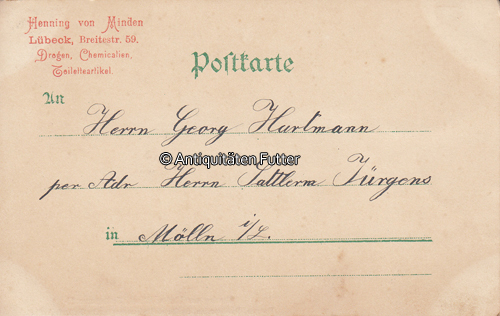 Henning von Minden
Lübeck, Breitestr. 59.
Drogen, Chemicalien,
Toiletteartikel.
Postkarte
An
Herrn Georg Hartmann
© Antiquitäten Futter
per Adr Herrn Sattlerm Jürgens
in Mölln i/L.